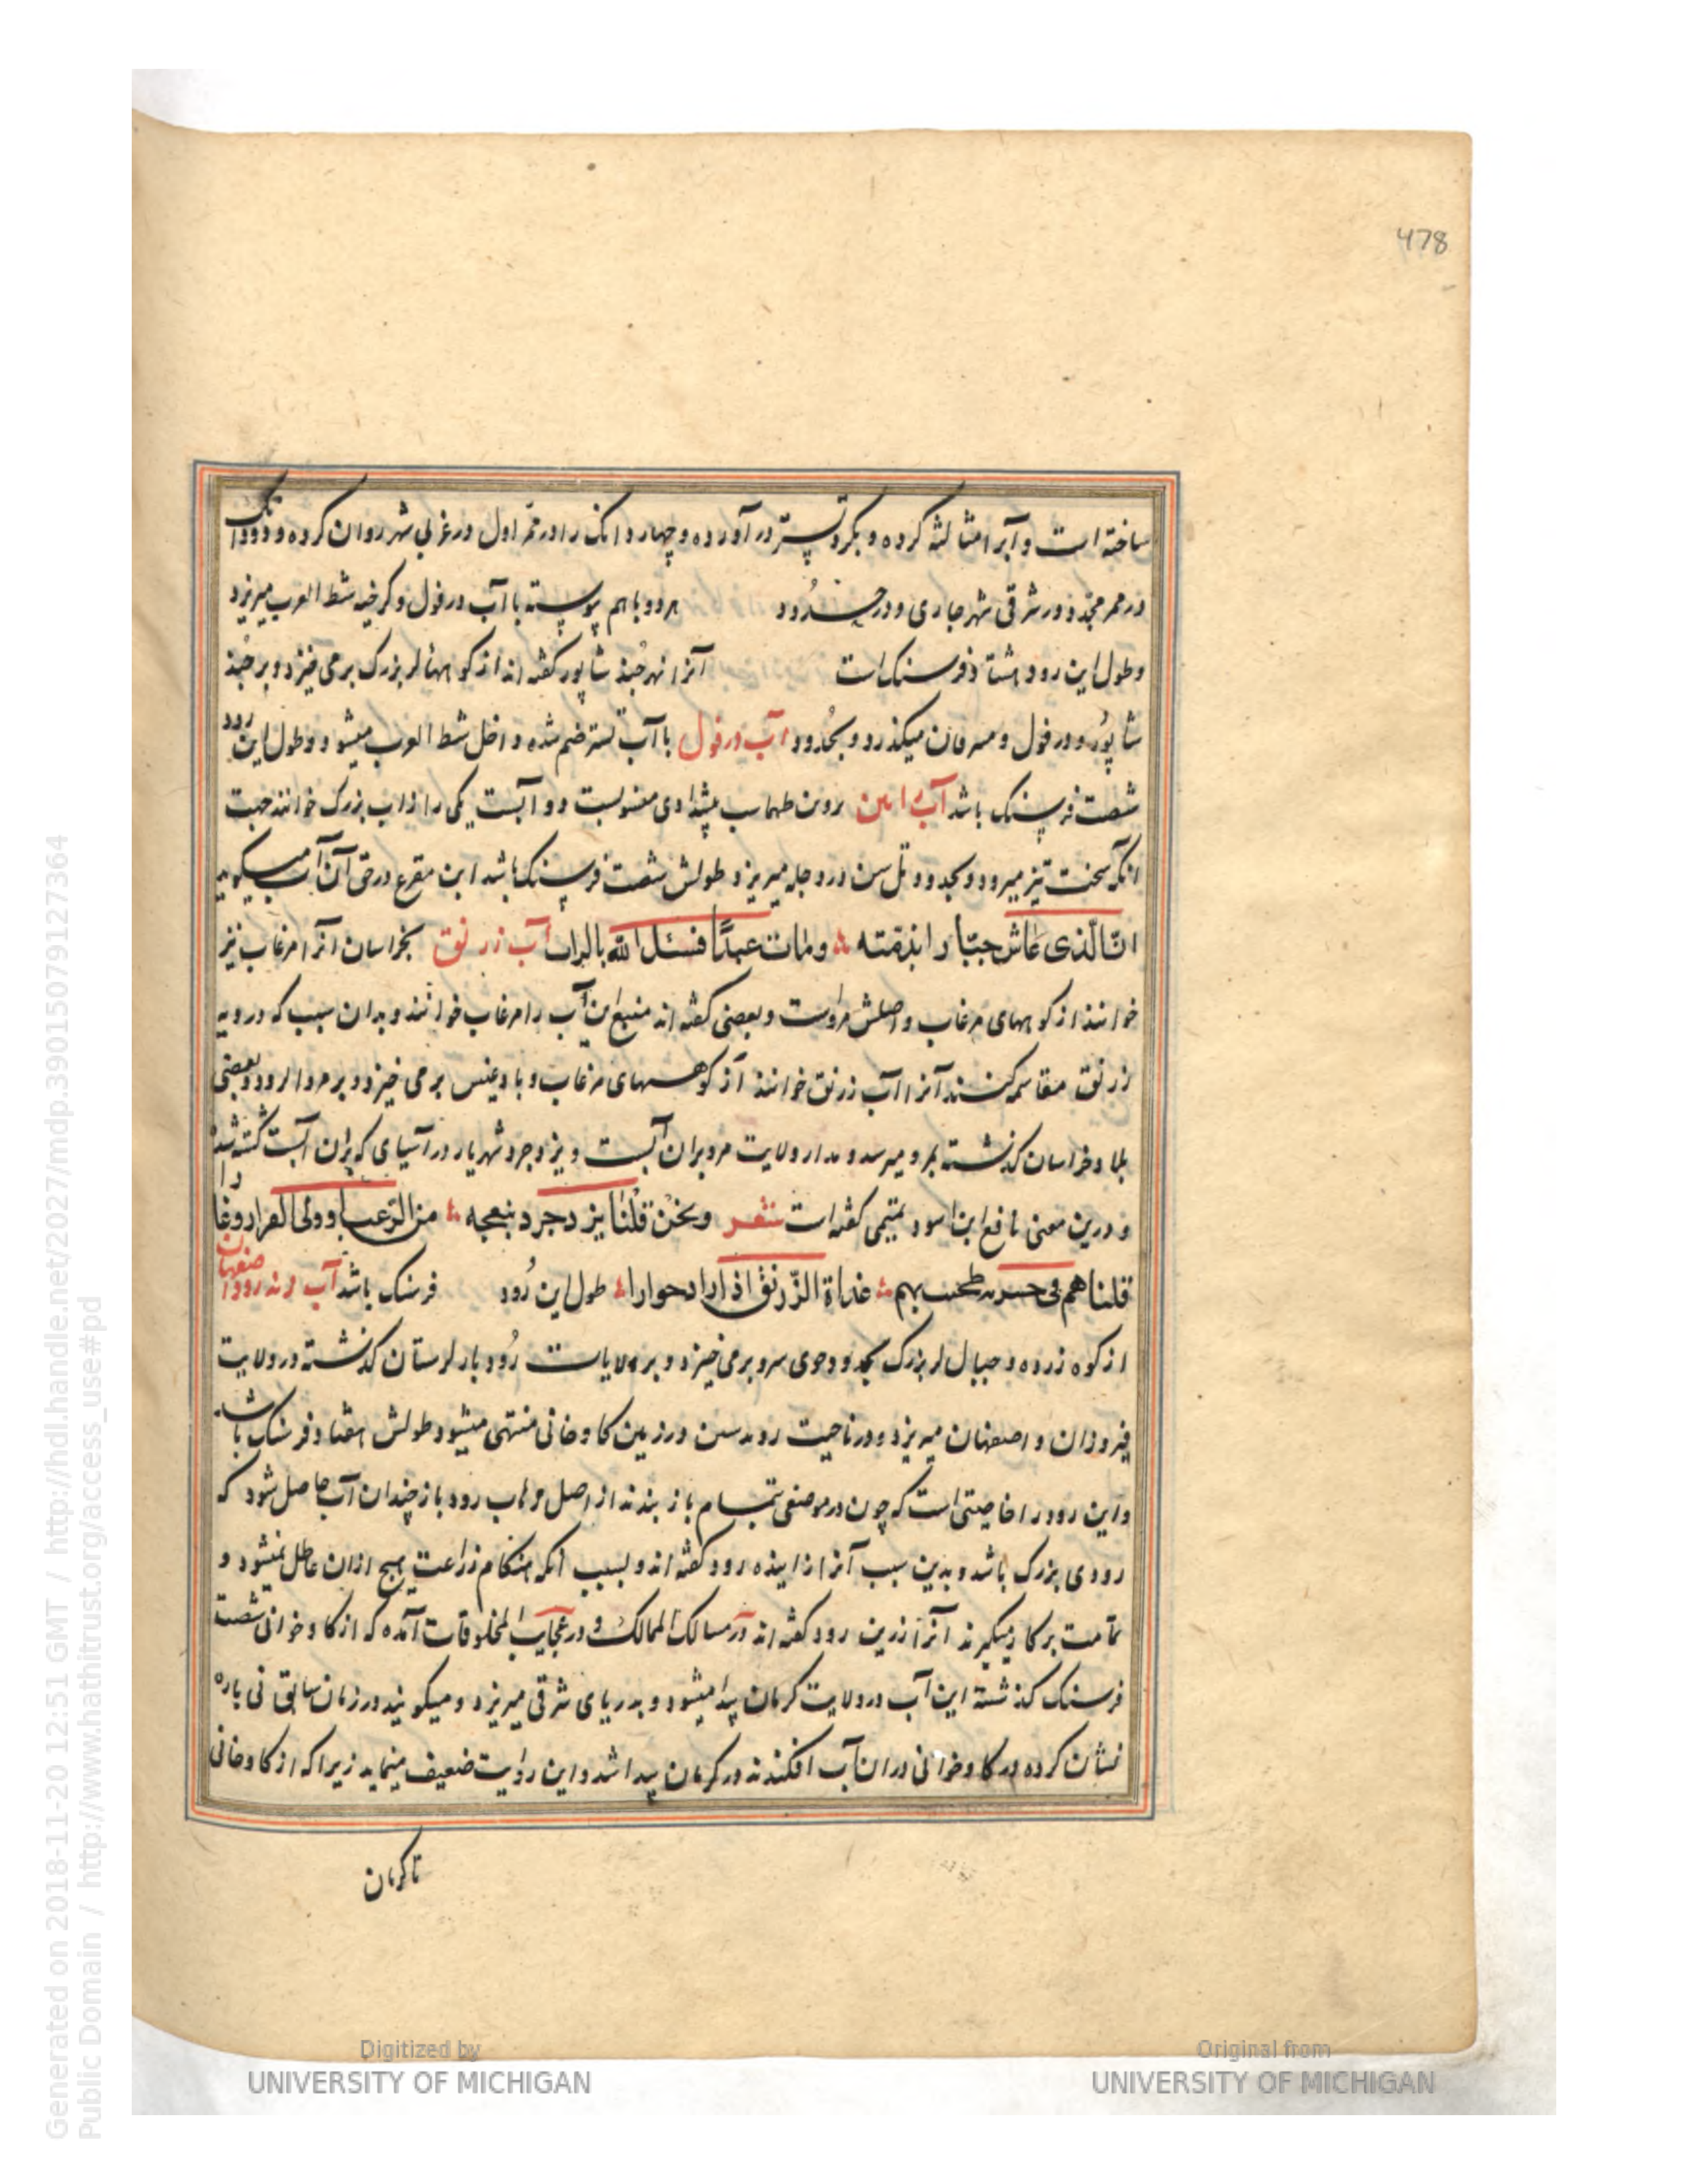 478
ساخته است و آبرا مثالثه کرده و بکرد تستر در آورده و چهار دانک را در ممر اول در غربی شهر روان کرده و دو دانک
در ممر مجدد در شرقی شهر جاری و در حدود هر دو باهم پیوسته با آب دزفول و کرخه شط العرب میریزد
و طول این رود هشتاد فرسنک است آنرا نهر جند شاپور کفته اند از کوههای لر بزرک برمی خیزد و بر جند
شاپور و دزفول و مسرقان میکذرد و بحدود آب دزفول با آب تستر ضم شده داخل شط العرب میشود و طول این رود
شصت فرسنک باشد آب زابین بروبن طهماسب پیشدادی منسوبست دو آبست یکی را زاب بزرک خوانند جهت
آنکه سخت تیز میرود و بحدود تل سن در دجله میریزد طولش شصت فرسنک باشد ابن مقرع در حق آن آب میکوید
انّ الّذی عاش جبّارا بذمّته و مات عبدًا قتیل الله بالزاب آب زرنق بخراسان آنرا مرغاب نیز
خوانند از کوههای مرغاب و اصلش مروآبست و بعضی کفته اند منبع این آب را مرغاب خوانند و بدان سبب که در دیه
زرنق مقاسم کنند آنرا آب زرنق خوانند از کوههای مرغاب و بادغیس برمی خیزد و بر مروالرود و بعضی
بلاد خراسان کذشته بمرو میرسد و مدار ولایت مرو بران آبست و یزدجرد شهریار در آسیای که بران آبست کشته شد
و درین معنی نافع ابن اسود تمیمی کفته است شعر و نحن قتلنا یزدجرد ببعجه من الرّعب اذ ولی الفرار و غارا
قتلناهم فی طحنت بهم غداة الزّرنق اذ اراد حوارا طول این رود فرسنک باشد آب زنده رود اصفهان
از کوه زرده و جبال لر بزرک بحدود جوی سرد برمی خیزد و بر ولایات رودبار لرستان کذشته در ولایت
فیروزان و اصفهان میریزد و در ناحیت رودشتین در زمین کاوخانی منتهی میشود طولش هفتاد فرسنک باشد
و این رود را خاصیتی است که چون در موضعی بتمام باز بندند از اصل و آب رود باز چندان آب حاصل شود که
رودی بزرک باشد و بدین سبب آنرا زاینده رود کفته اند و بسبب آنکه هنکام زراعت هیچ ازان عاطل نمیشود و
تمامت برکار میکیرند آنرا زرین رود کفته اند در مسالک الممالک و در عجایب المخلوقات آمده که از کاوخوانی شصت
فرسنک کذشته این آب در ولایت کرمان پیدا میشود و بدریای شرقی میریزد و میکویند در زمان سابق نی پاره
نشان کرده در کاوخوانی دران آب افکندند در کرمان پیدا شد و این روایت ضعیف مینماید زیرا که از کاوخانی
تا کرمان
Digitized by
UNIVERSITY OF MICHIGAN
Original from
UNIVERSITY OF MICHIGAN
Generated on 2018-11-20 12:51 GMT / http://hdl.handle.net/2027/mdp.39015079127364
Public Domain / http://www.hathitrust.org/access_use#pd